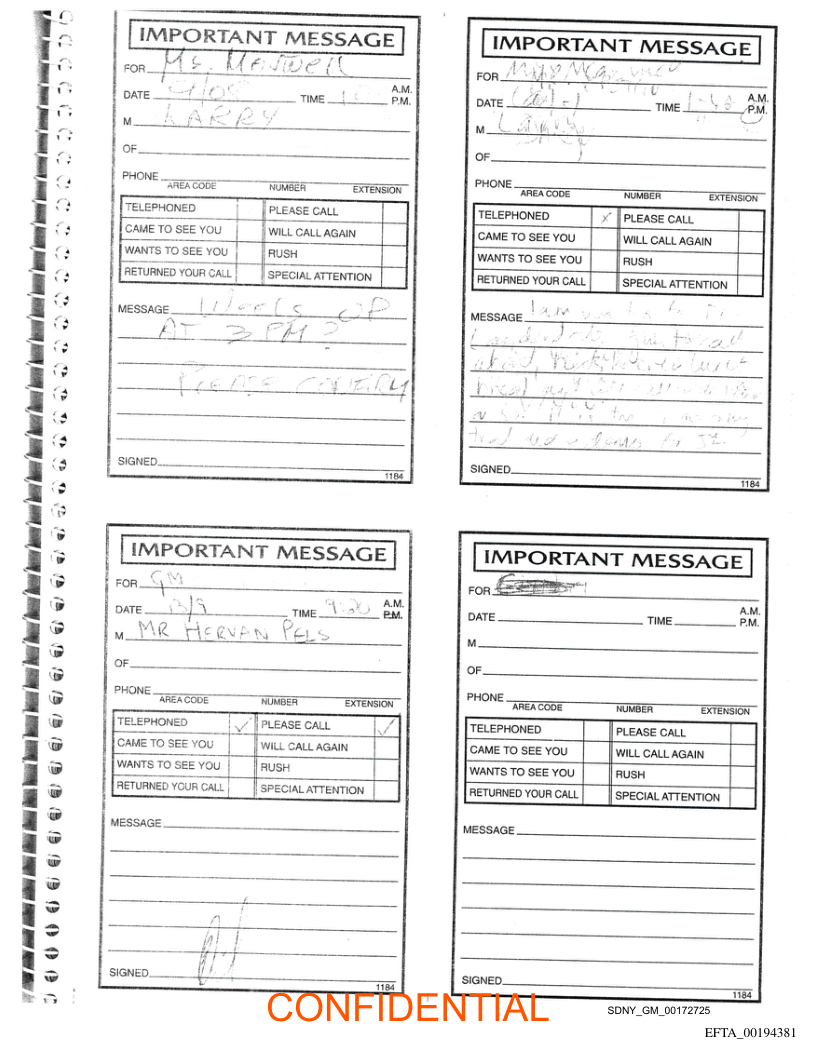 IMPORTANT MESSAGE
FOR Ms. Maxwell
DATE 9/08 TIME A.M. P.M.
M LARRY
OF
PHONE
AREA CODE NUMBER EXTENSION
TELEPHONED PLEASE CALL
CAME TO SEE YOU WILL CALL AGAIN
WANTS TO SEE YOU RUSH
RETURNED YOUR CALL SPECIAL ATTENTION
MESSAGE Wheels UP
AT 3 PM?
PLEASE CONFIRM
SIGNED
1184
IMPORTANT MESSAGE
FOR
DATE TIME A.M. P.M.
M Larry
OF
PHONE
AREA CODE NUMBER EXTENSION
TELEPHONED PLEASE CALL
CAME TO SEE YOU WILL CALL AGAIN
WANTS TO SEE YOU RUSH
RETURNED YOUR CALL SPECIAL ATTENTION
MESSAGE I am
SIGNED
1184
IMPORTANT MESSAGE
FOR GM
DATE 13/9 TIME 9:20 A.M. P.M.
M MR HERVAN PELS
OF
PHONE
AREA CODE NUMBER EXTENSION
TELEPHONED ✓ PLEASE CALL ✓
CAME TO SEE YOU WILL CALL AGAIN
WANTS TO SEE YOU RUSH
RETURNED YOUR CALL SPECIAL ATTENTION
MESSAGE
SIGNED
1184
IMPORTANT MESSAGE
FOR
DATE TIME A.M. P.M.
M
OF
PHONE
AREA CODE NUMBER EXTENSION
TELEPHONED PLEASE CALL
CAME TO SEE YOU WILL CALL AGAIN
WANTS TO SEE YOU RUSH
RETURNED YOUR CALL SPECIAL ATTENTION
MESSAGE
SIGNED
1184
CONFIDENTIAL
SDNY_GM_00172725
EFTA_00194381